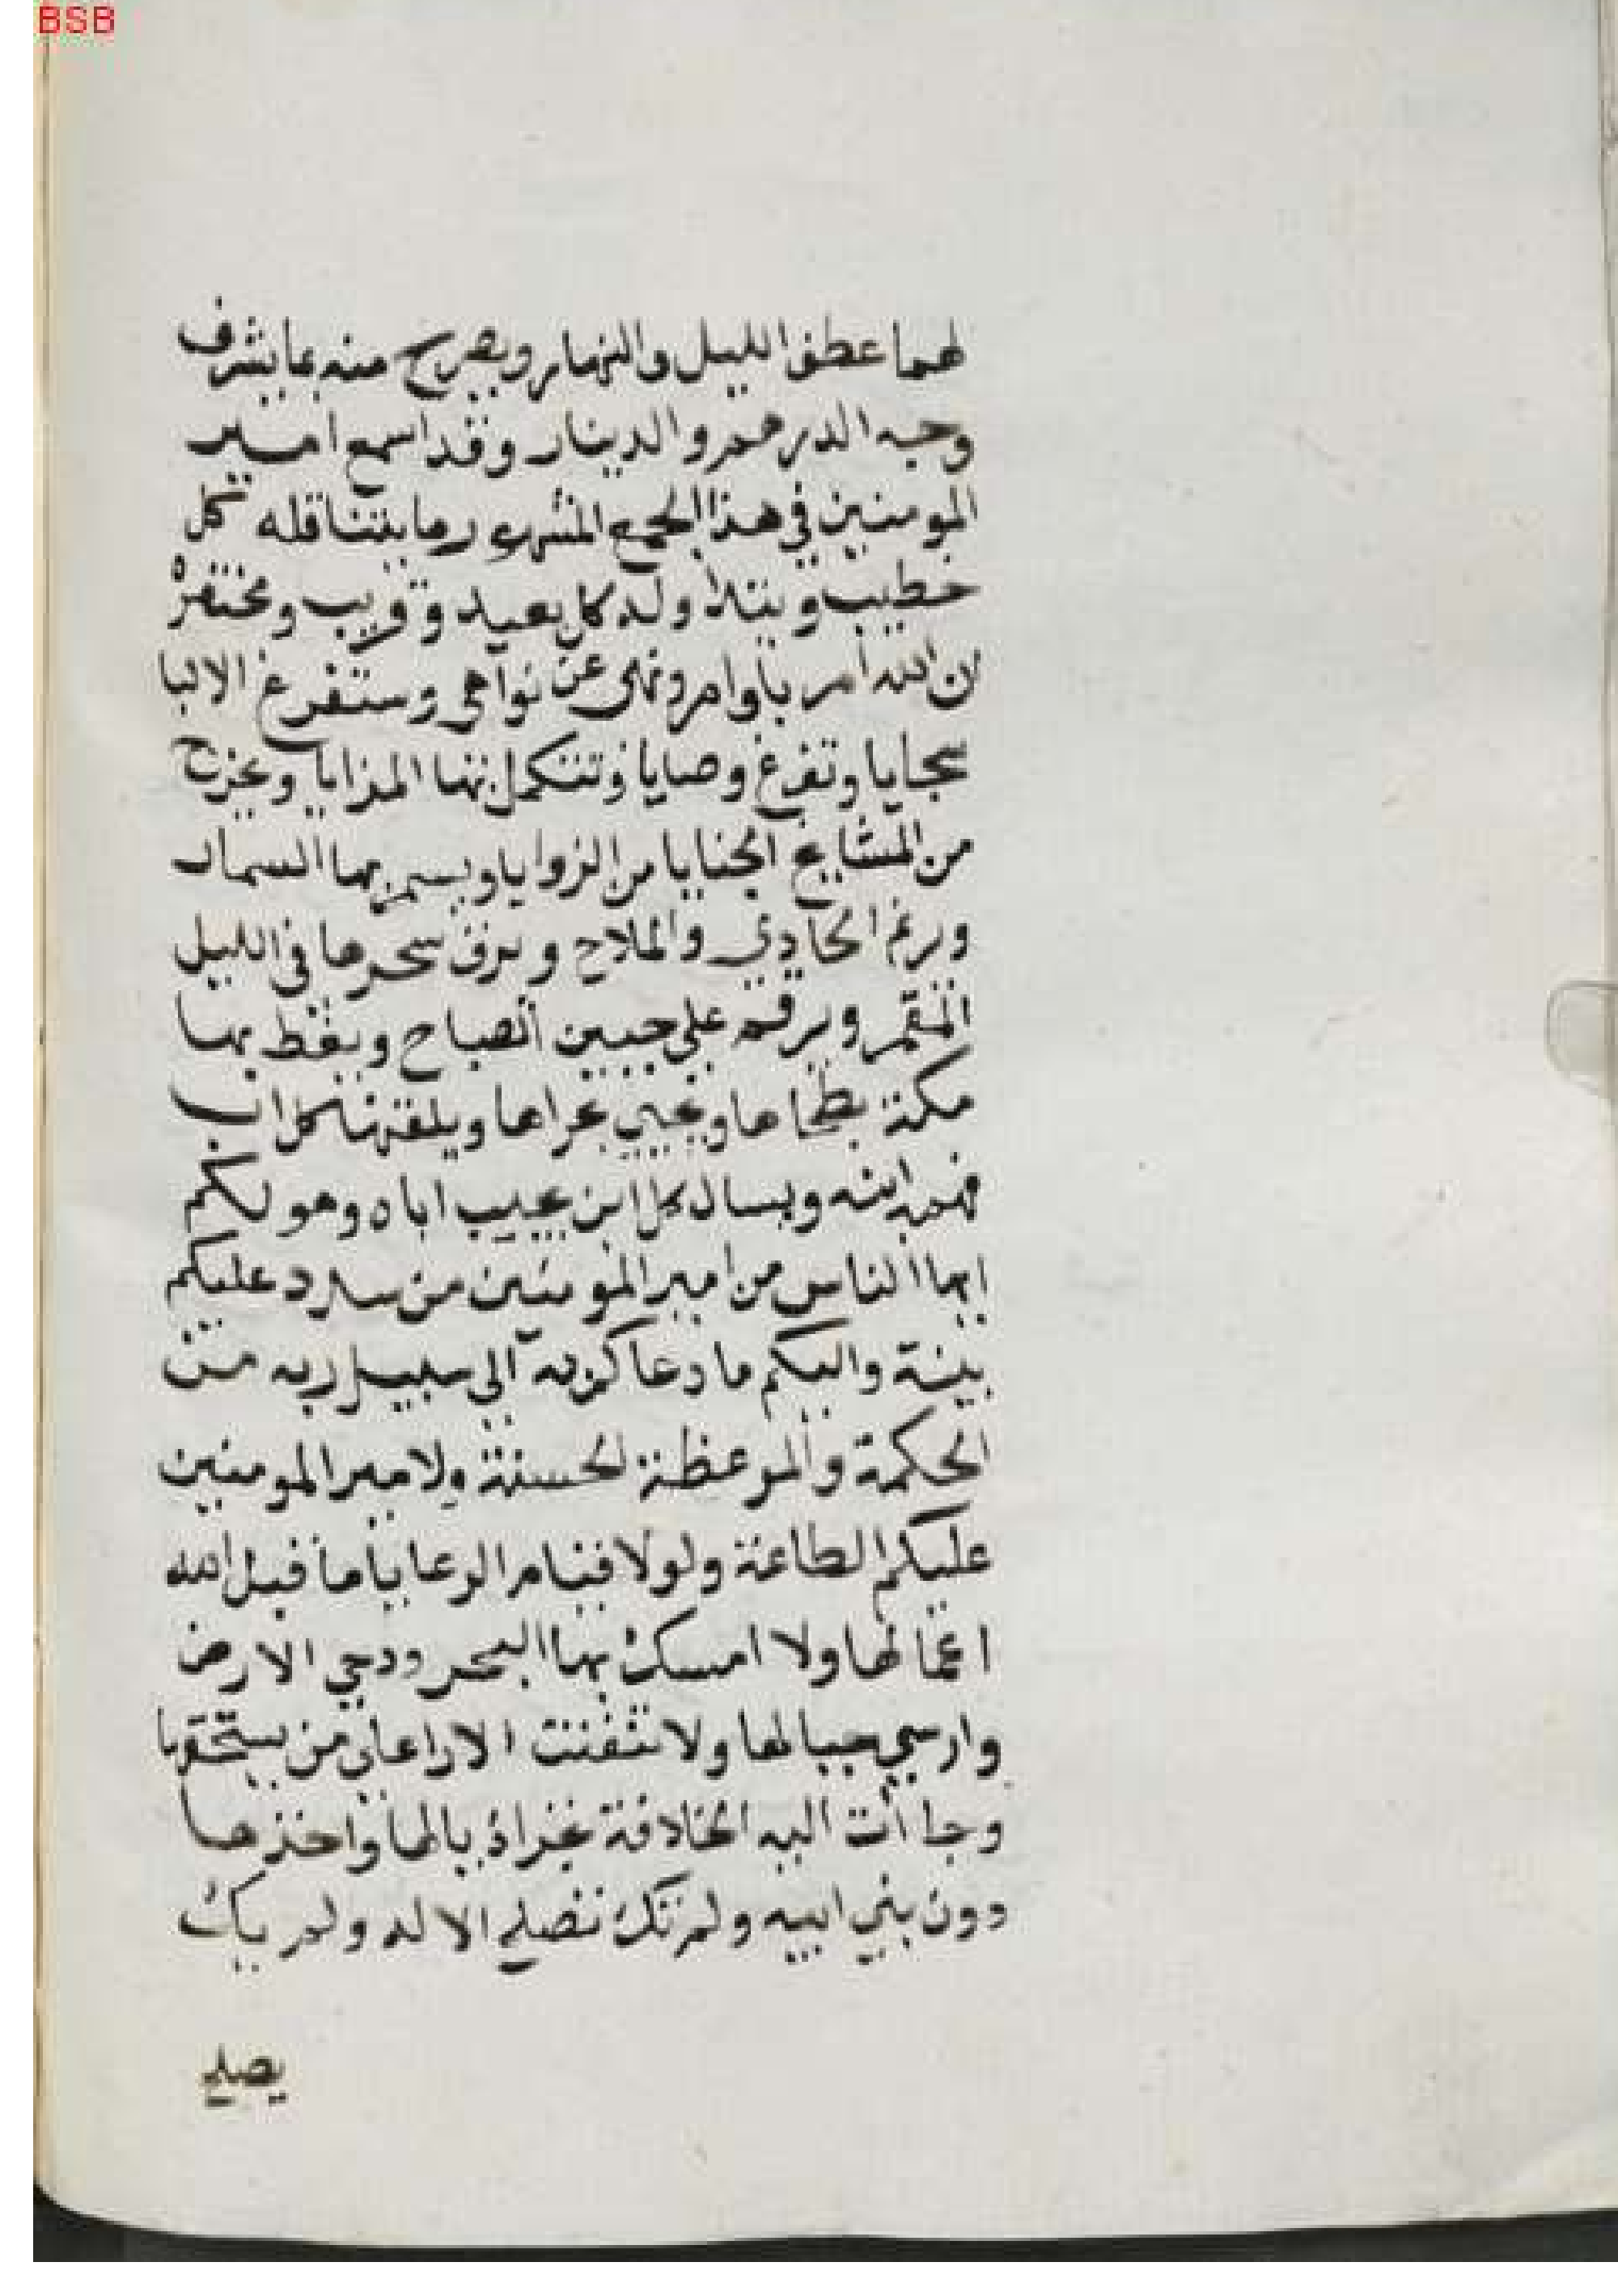 BSB
لهما عطف الليل والنهار ويصرح منه بما يشرف
وجه الدرهم والدينار وقد اسمع امير
المومنين في هذا الجمع المشهود ما يتناقله كل
خطيب ويتداوله كل بعيد وقريب ومختصره
ان الله امر باوامر ونهى عن نواهي وستفرغ الالبا
سجايا وتفرغ وصايا وتتكمل بها المزايا ويخرج
من المشايع الخبايا من الزوايا ويسمر بها السمار
ورنم الحادي والملاح ويرق سحرها في الليل
المقمر ويرقم على جبين الصباح ويغط بها
مكة بطحاها ويحيي بحراها ويلقنها كل اب
فهم ابنه ويسال كل ابن نجيب اباه وهو لكم
ايها الناس من امير المومنين من سدد عليكم
بينة واليكم ما دعاكم به الى سبيل ربه من
الحكمة والموعظة لحسنة ولامير المومنين
عليكم الطاعة ولولا قيام الرعايا ما قبل الله
اعمالها ولا امسك بها البحر ودحي الارض
وارسي جبالها ولا تفقت الارا على من يستحقها
وجاأت اليه الخلافة تجر اذيالها واخذها
دون بني ابيه ولم تك تصلح الا له ولم يك
يصلح